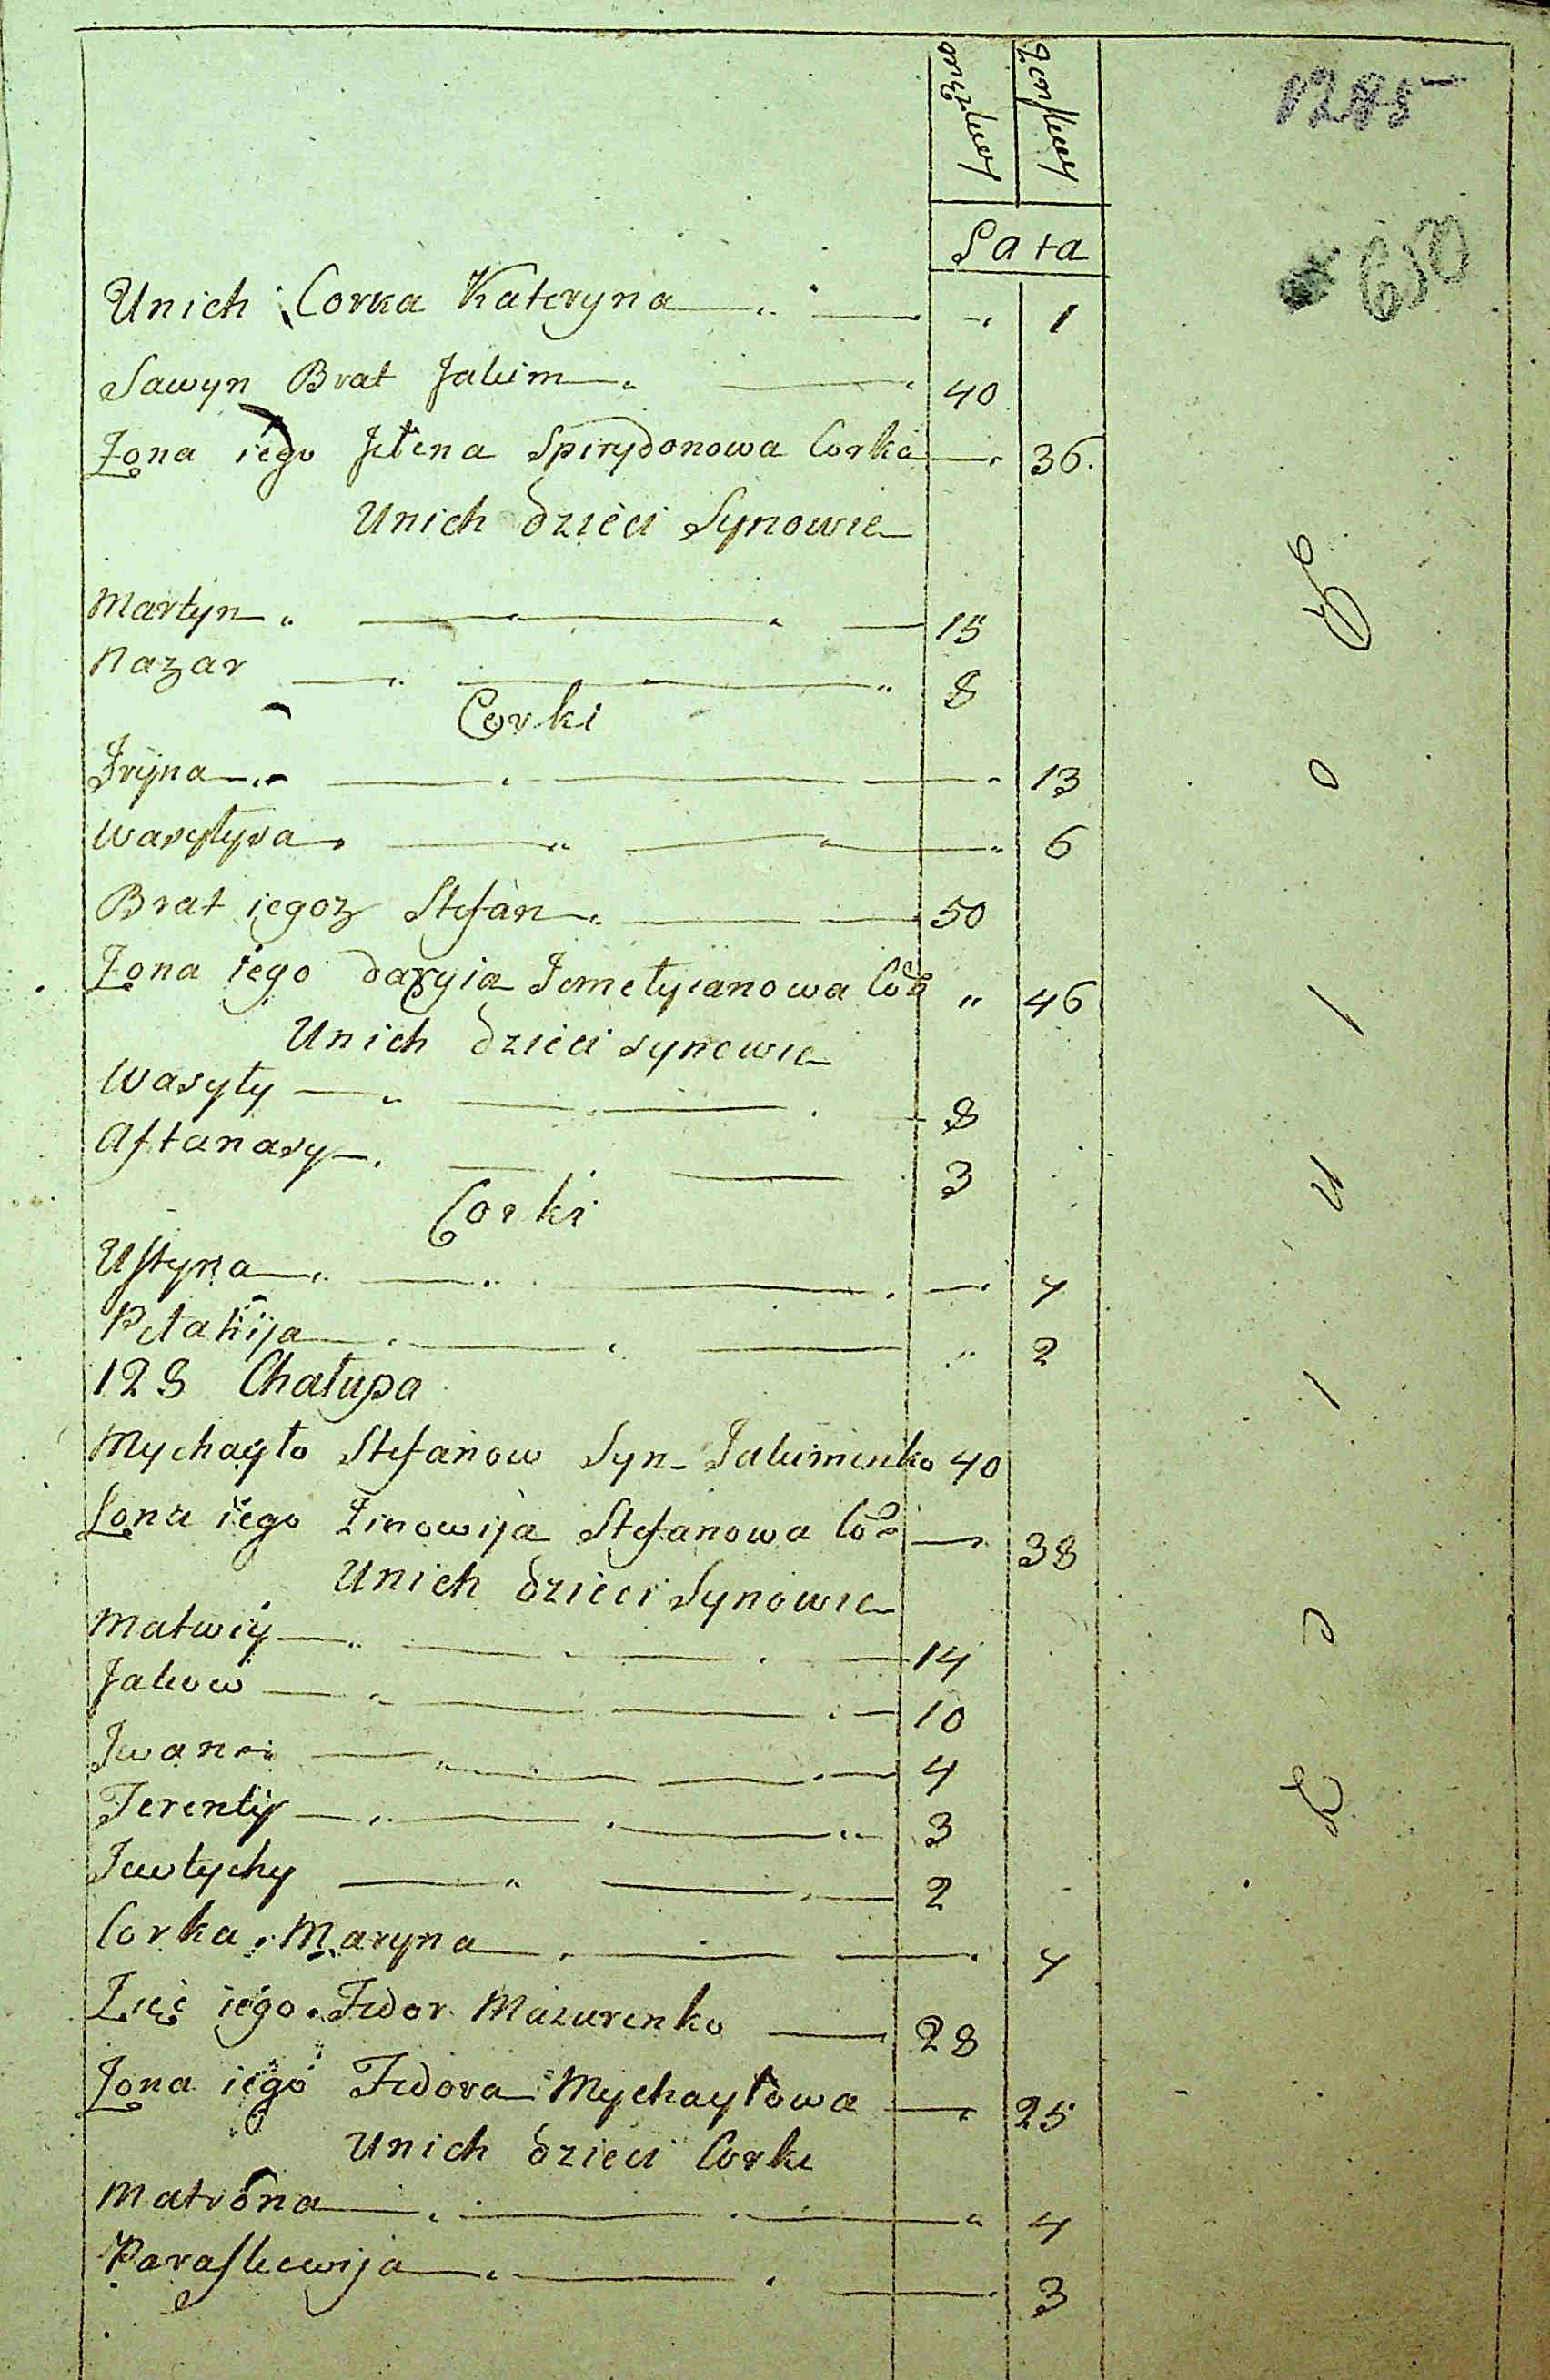 męzkwy żenskwy
Lata
Unich Corka Kateryna 1
Sawyn Brat Jakim 40
Zona iego Jełena Spirydonowa Corka 36.
Unich dzieci Synowie
Martyn 15
Nazar 8
Corki
Iryna 13
Wasyłysa 6
Brat iegoz Stefan 50
Zona iego daryia Jemełyianowa 46
Unich dzieci synowie
Wasyły 8
Aftanasy 3
Corki
Ustyna 4
Pełahija 2
128 Chałupa
Mychayło Stefanow Syn Jakimenko 40
Zona iego Zinowija Stefanowa 38
Unich dzieci Synowie
Matwiy 14
Jakow 10
Iwan 4
Terenty 3
Jewtychy 2
Corka Maryna 4
Zięć iego Fedor Mazurenko 28
Zona iego Fedora Mychayłowa 25
Unich dzieci Corki
Matrona 4
Paraskewija 3